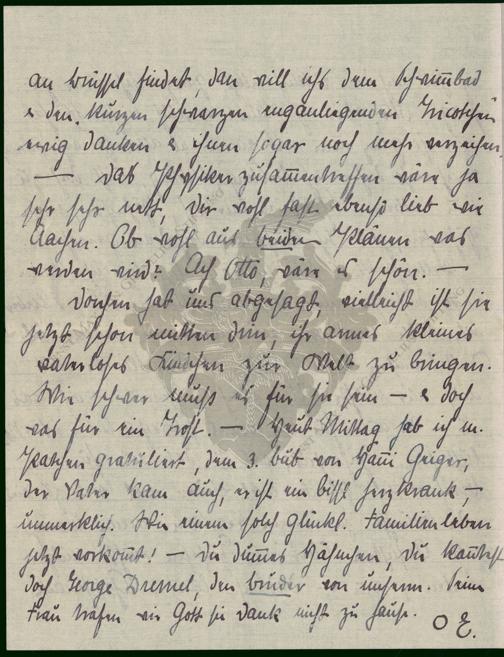 an Brüssel findet, dan will ichs dem Schwimbad
& den kurzen schwarzen enganliegenden Tricothös
ewig danken & ihnen sogar noch mehr verzeihen,
— das Physikerzusammentreffen wäre ja
sehr sehr nett, dir wohl fast ebenso lieb wie
Aachen. Ob wohl aus beiden Plänen was
werden wird? Ach Otto, wäre es schön. —
hat uns abgesagt, vielleicht ist sie
jetzt schon mitten drin, ihr armes kleines
vaterloses zur Welt zu bringen.
Wie schwer muss es für sie sein — & doch
was für ein Trost. — Heut Mittag hab ich m.
gratuliert, dem 3. bub von Geiger,
der Vater kam auch, er ist ein bissl herzkrank —
unmerklich. Wie einem solch glückl. Familienleben
jetzt vorkomt! — du dummes Hähnchen, du
doch George, den bruder von unserm. Seine
Frau trafen wir Gott sei dank nicht zu hause.